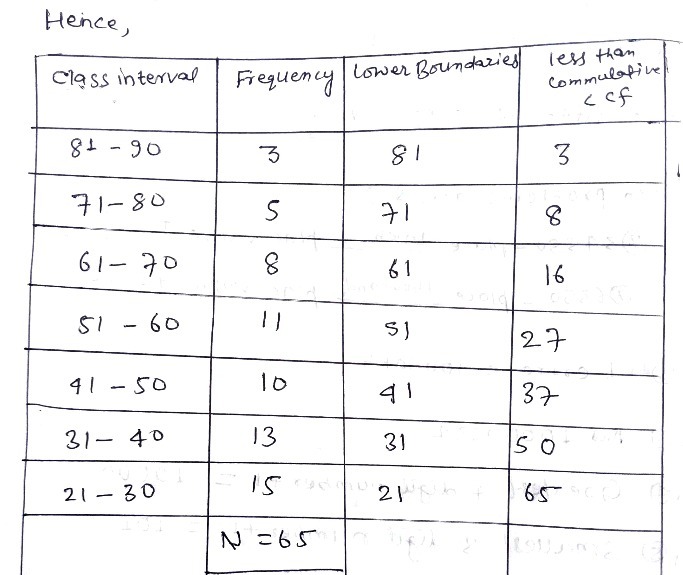 Hence,
Class interval Frequency Lower Boundaries less than commulative < cf
81 - 90 3 81 3
71 - 80 5 71 8
61 - 70 8 61 16
51 - 60 11 51 27
41 - 50 10 41 37
31 - 40 13 31 50
21 - 30 15 21 65
N = 65